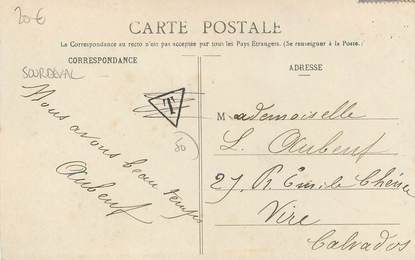 20 €
CARTE POSTALE
La Correspondance au recto n'est pas acceptée par tous les Pays Etrangers. (Se renseigner à la Poste.)
CORRESPONDANCE
SOURDEVAL
Nous avons beau temps
Aubeuf
T
50
ADRESSE
Mademoiselle
L. Aubeuf
27 R. Emile Chénel
Vire
Calvados